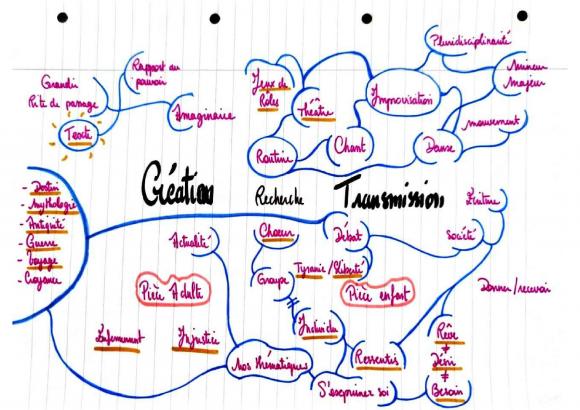 Pluridisciplinarité
Rapport au
pouvoir
Mineur
majeur
Grandir
Rite de passage
Jeux de
Rôles
Improvisation
Théâtre
Imaginaire
Texte
mouvement
Routine
Chant
Danse
Création
Recherche
Transmission
Ecriture
- Destin
- Mythologie
- Antiquité
- Guerre
- Voyage
- Croyance
Actualité
Chœur
Débat
Société
Groupe
Tyrannie / Liberté
Pièce Adulte
Pièce enfant
Donner/recevoir
Enfermement
Injustice
Individu
Ressentis
Rêve
≠
Désir
≠
Besoin
Nos thématiques
S'exprimer soi